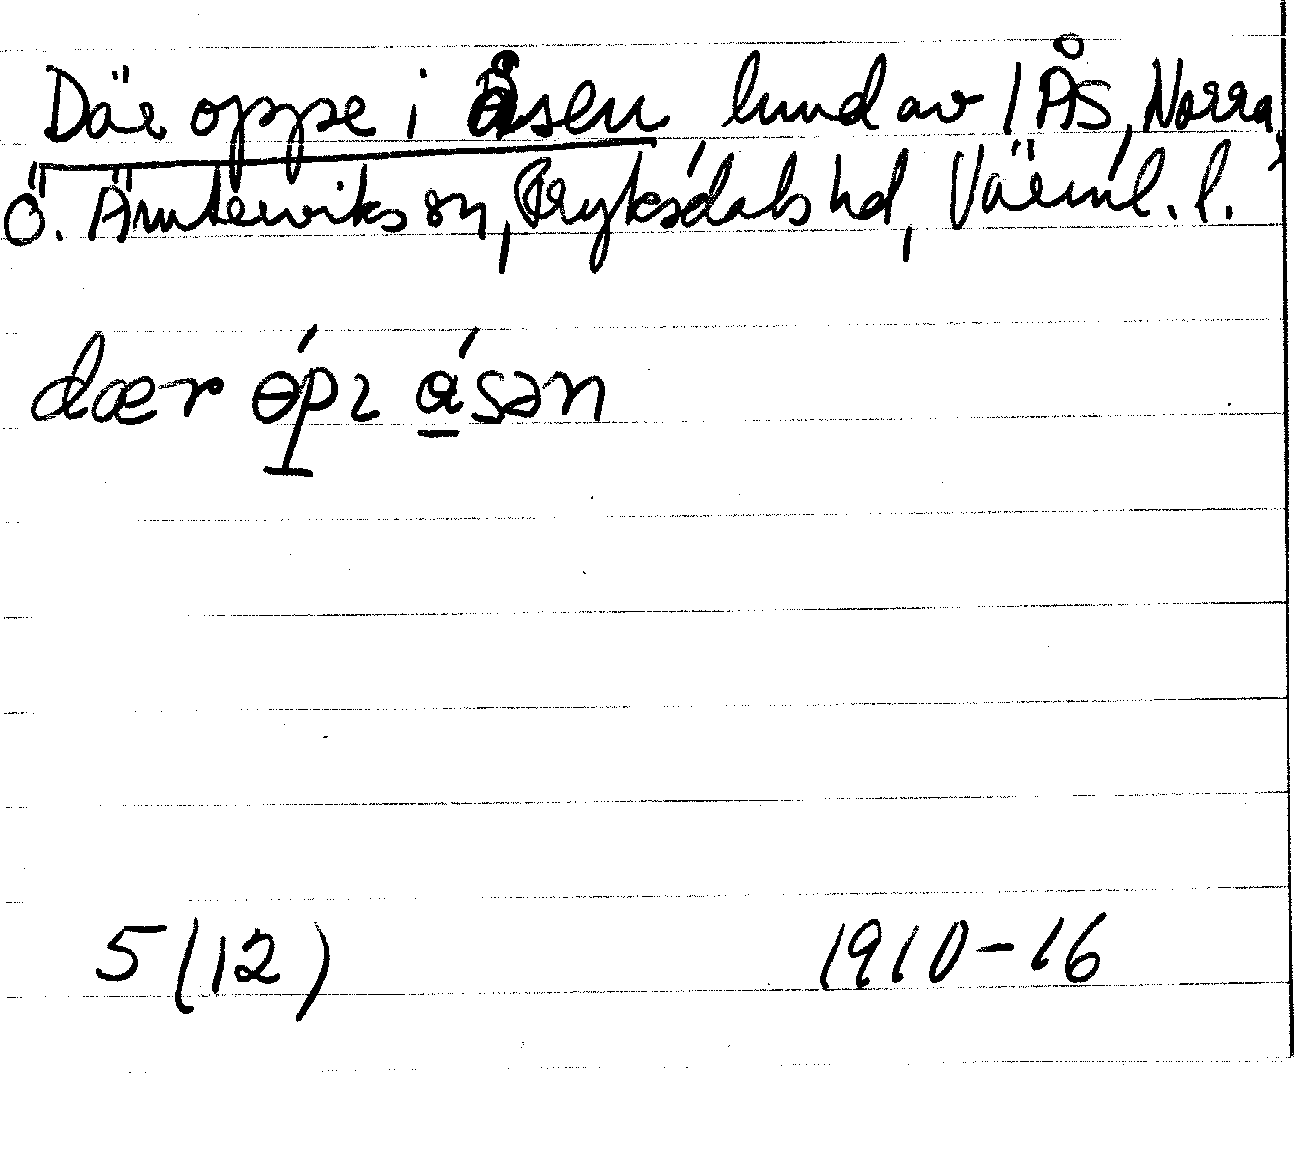 Där oppe i Åsen hmd av 1 ÅS, Norra,
Ö. Ämterviks sn, Fryksdals hd, Värml. l.
dær ɵ́pɪ ásən
5 (12) 1910-16